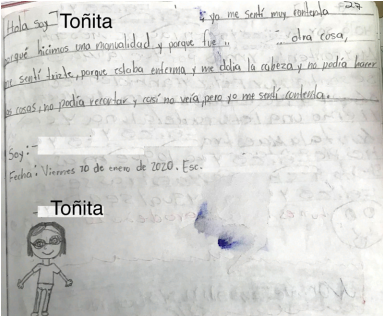 27
Hola soy Toñita y yo me sentí muy contenta
porque hicimos una manualidad y porque fue.. otra cosa,
me sentí triste, porque estaba enferma y me dolia la cabeza y no podía hacer
las cosas, no podía recortar y casi no veía, pero yo me sentí contenta.
Soy:
Fecha: Viernes 10 de enero de 2020. Esc.
Toñita